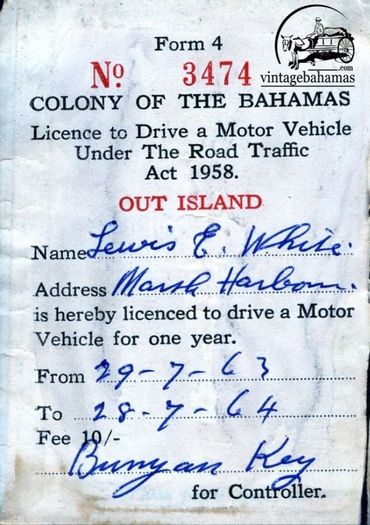 Form 4
Nº 3474
.com
vintagebahamas
COLONY OF THE BAHAMAS
Licence to Drive a Motor Vehicle
Under The Road Traffic
Act 1958.
OUT ISLAND
Name Lewis E. White.
Address Marsh Harbour.
is hereby licenced to drive a Motor
Vehicle for one year.
From 29-7-63
To 28-7-64
Fee 10/-
Bunyan Key
for Controller.